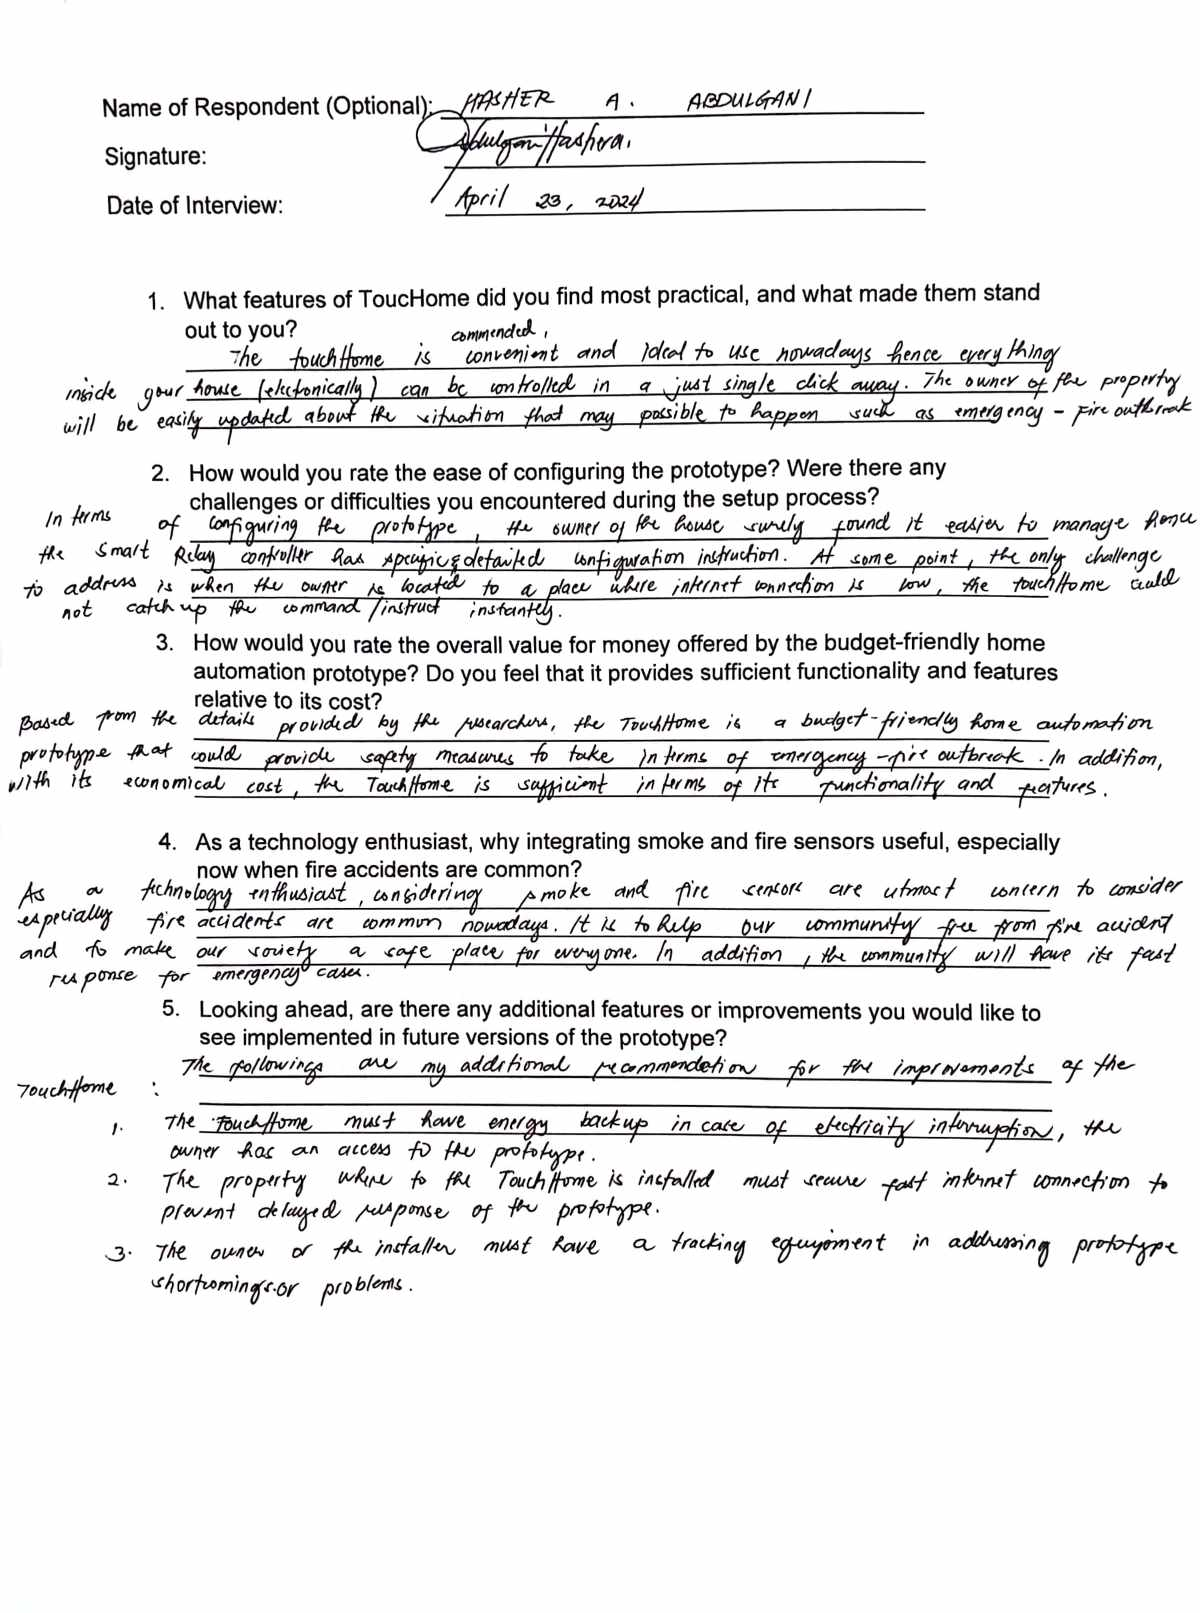 Name of Respondent (Optional): HASHER A. ABDULGANI
Signature: Abdulgani Hashera.
Date of Interview: April 23, 2024
1. What features of ToucHome did you find most practical, and what made them stand
out to you?
commended,
The touchHome is convenient and ideal to use nowadays hence everything
inside your house (electonically) can be controlled in a just single click away. The owner of the property
will be easily updated about the situation that may possible to happen such as emergency - Fire outbreak
2. How would you rate the ease of configuring the prototype? Were there any
challenges or difficulties you encountered during the setup process?
In terms of configuring the prototype, the owner of the house surely found it easier to manage hence
the Smart Relay controller has specific & detailed configuration instruction. At some point, the only challenge
to address is when the owner is located to a place where internet connection is low, the touchHome could
not catch up the command / instruct instantely.
3. How would you rate the overall value for money offered by the budget-friendly home
automation prototype? Do you feel that it provides sufficient functionality and features
relative to its cost?
Based from the details provided by the researchers, the TouchHome is a budget-friendly home automation
prototype that could provide safety measures to take in terms of emergency -fire outbreak. In addition,
with its economical cost, the TouchHome is sufficient in terms of its functionality and features.
4. As a technology enthusiast, why integrating smoke and fire sensors useful, especially
now when fire accidents are common?
As a technology enthusiast, considering smoke and fire sensors are utmost concern to consider
especially fire accidents are common nowadays. It is to help our community free from fire accident
and to make our society a safe place for everyone. In addition, the community will have its fast
response for emergency cases.
5. Looking ahead, are there any additional features or improvements you would like to
see implemented in future versions of the prototype?
The followings are my additional recommendation for the improvements of the
TouchHome :
1. The TouchHome must have energy backup in case of electricity interruption, the
owner has an access to the prototype.
2. The property where to the TouchHome is installed must secure fast internet connection to
prevent delayed response of the prototype.
3. The owner or the installer must have a tracking equipment in addressing prototype
shortcomings or problems.